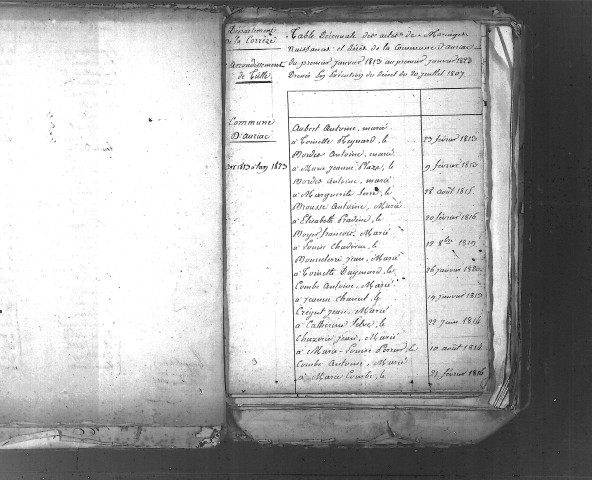 Département
de la Corrèze
Arrondissement
de Tulle
Commune
D'auriac
Table Décennale des actes de Mariages
Naissances et décès de la Commune d'auriac
du premier janvier 1813 au premier janvier 1823
Dressée en Exécution du décret du 20 juillet 1807.
Aubert Antoine, marié
à Toinette Meynard, le 23 février 1813
Bordes Antoine, marié
à Marie jeanne Plaze, le 9 février 1813
Bordes Antoine, marié
à Marguerite, le 28 août 1815
Brousse Antoine, Marié
à Elisabeth Pradine, le 20 février 1816
Boyer francois, Marié
à Louise, le 12 8bre 1819
jean, Marié
à Toinette, le 26 janvier 1820
Combe Antoine, Marié
à jeanne, le 19 janvier 1813
jean, Marié
à Catherine Selve, le 22 juin 1814
Chazerie jean, Marié
à Marie-Louise, le 10 août 1814
Combe Antoine, Marié
à Marie Combe, le 21 février 1816